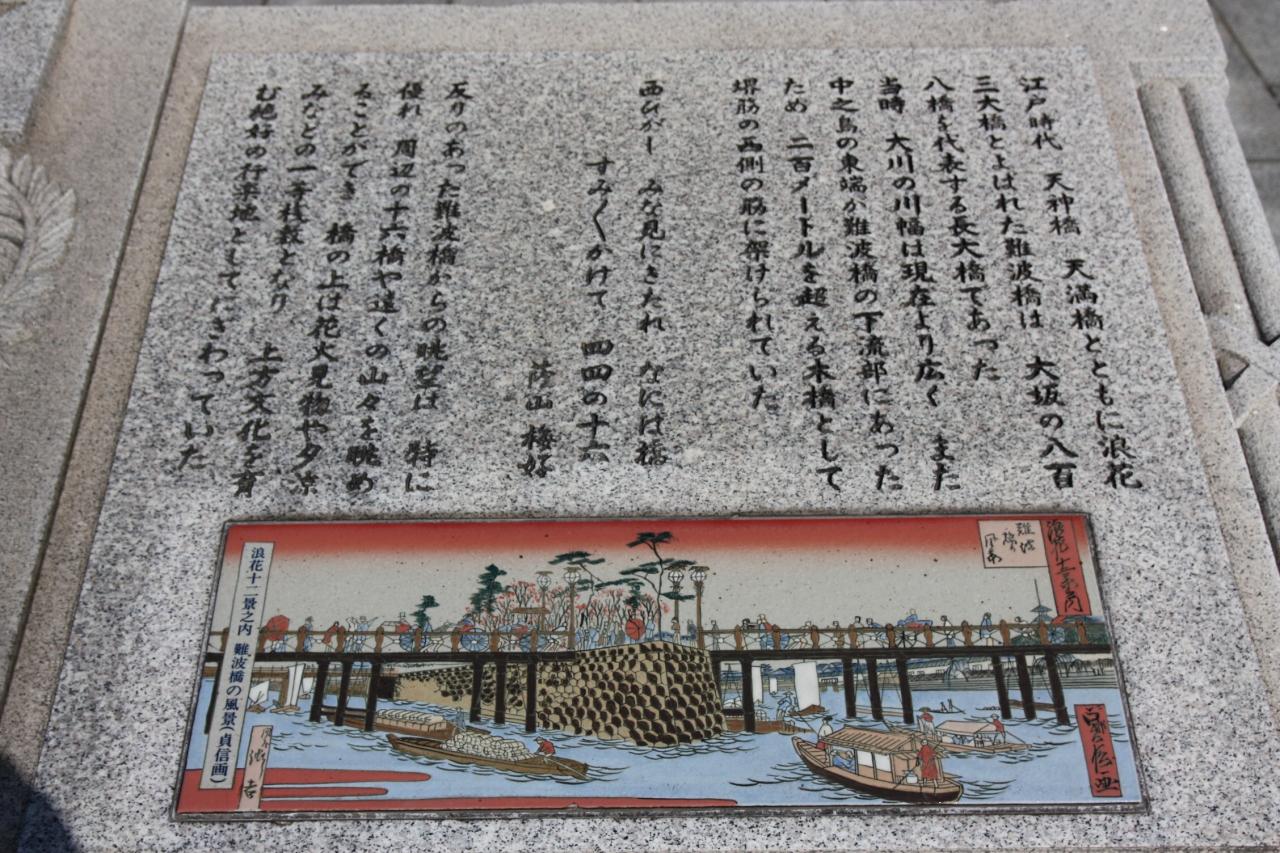 江戸時代 天神橋 天満橋とともに浪花
三大橋とよばれた難波橋は 大坂の八百
八橋を代表する長大橋であった
当時 大川の川幅は現在より広く また
中之島の東端が難波橋の下流部にあった
ため 二百メートルを超える木橋として
堺筋の西側の筋に架けられていた
西ひがし みな見にきたれ なには橋
すみ〳〵かけて 四四の十六
蔭山 梅好
反りのあった難波橋からの眺望は 特に
優れ 周辺の十六橋や遠くの山々を眺め
ることができ 橋の上は花火見物や夕涼
みなどの一等桟敷となり 上方文化を育
む絶好の行楽地としてにぎわっていた
難波
橋の
風景
浪花十二景之内 難波橋の風景(貞信画)